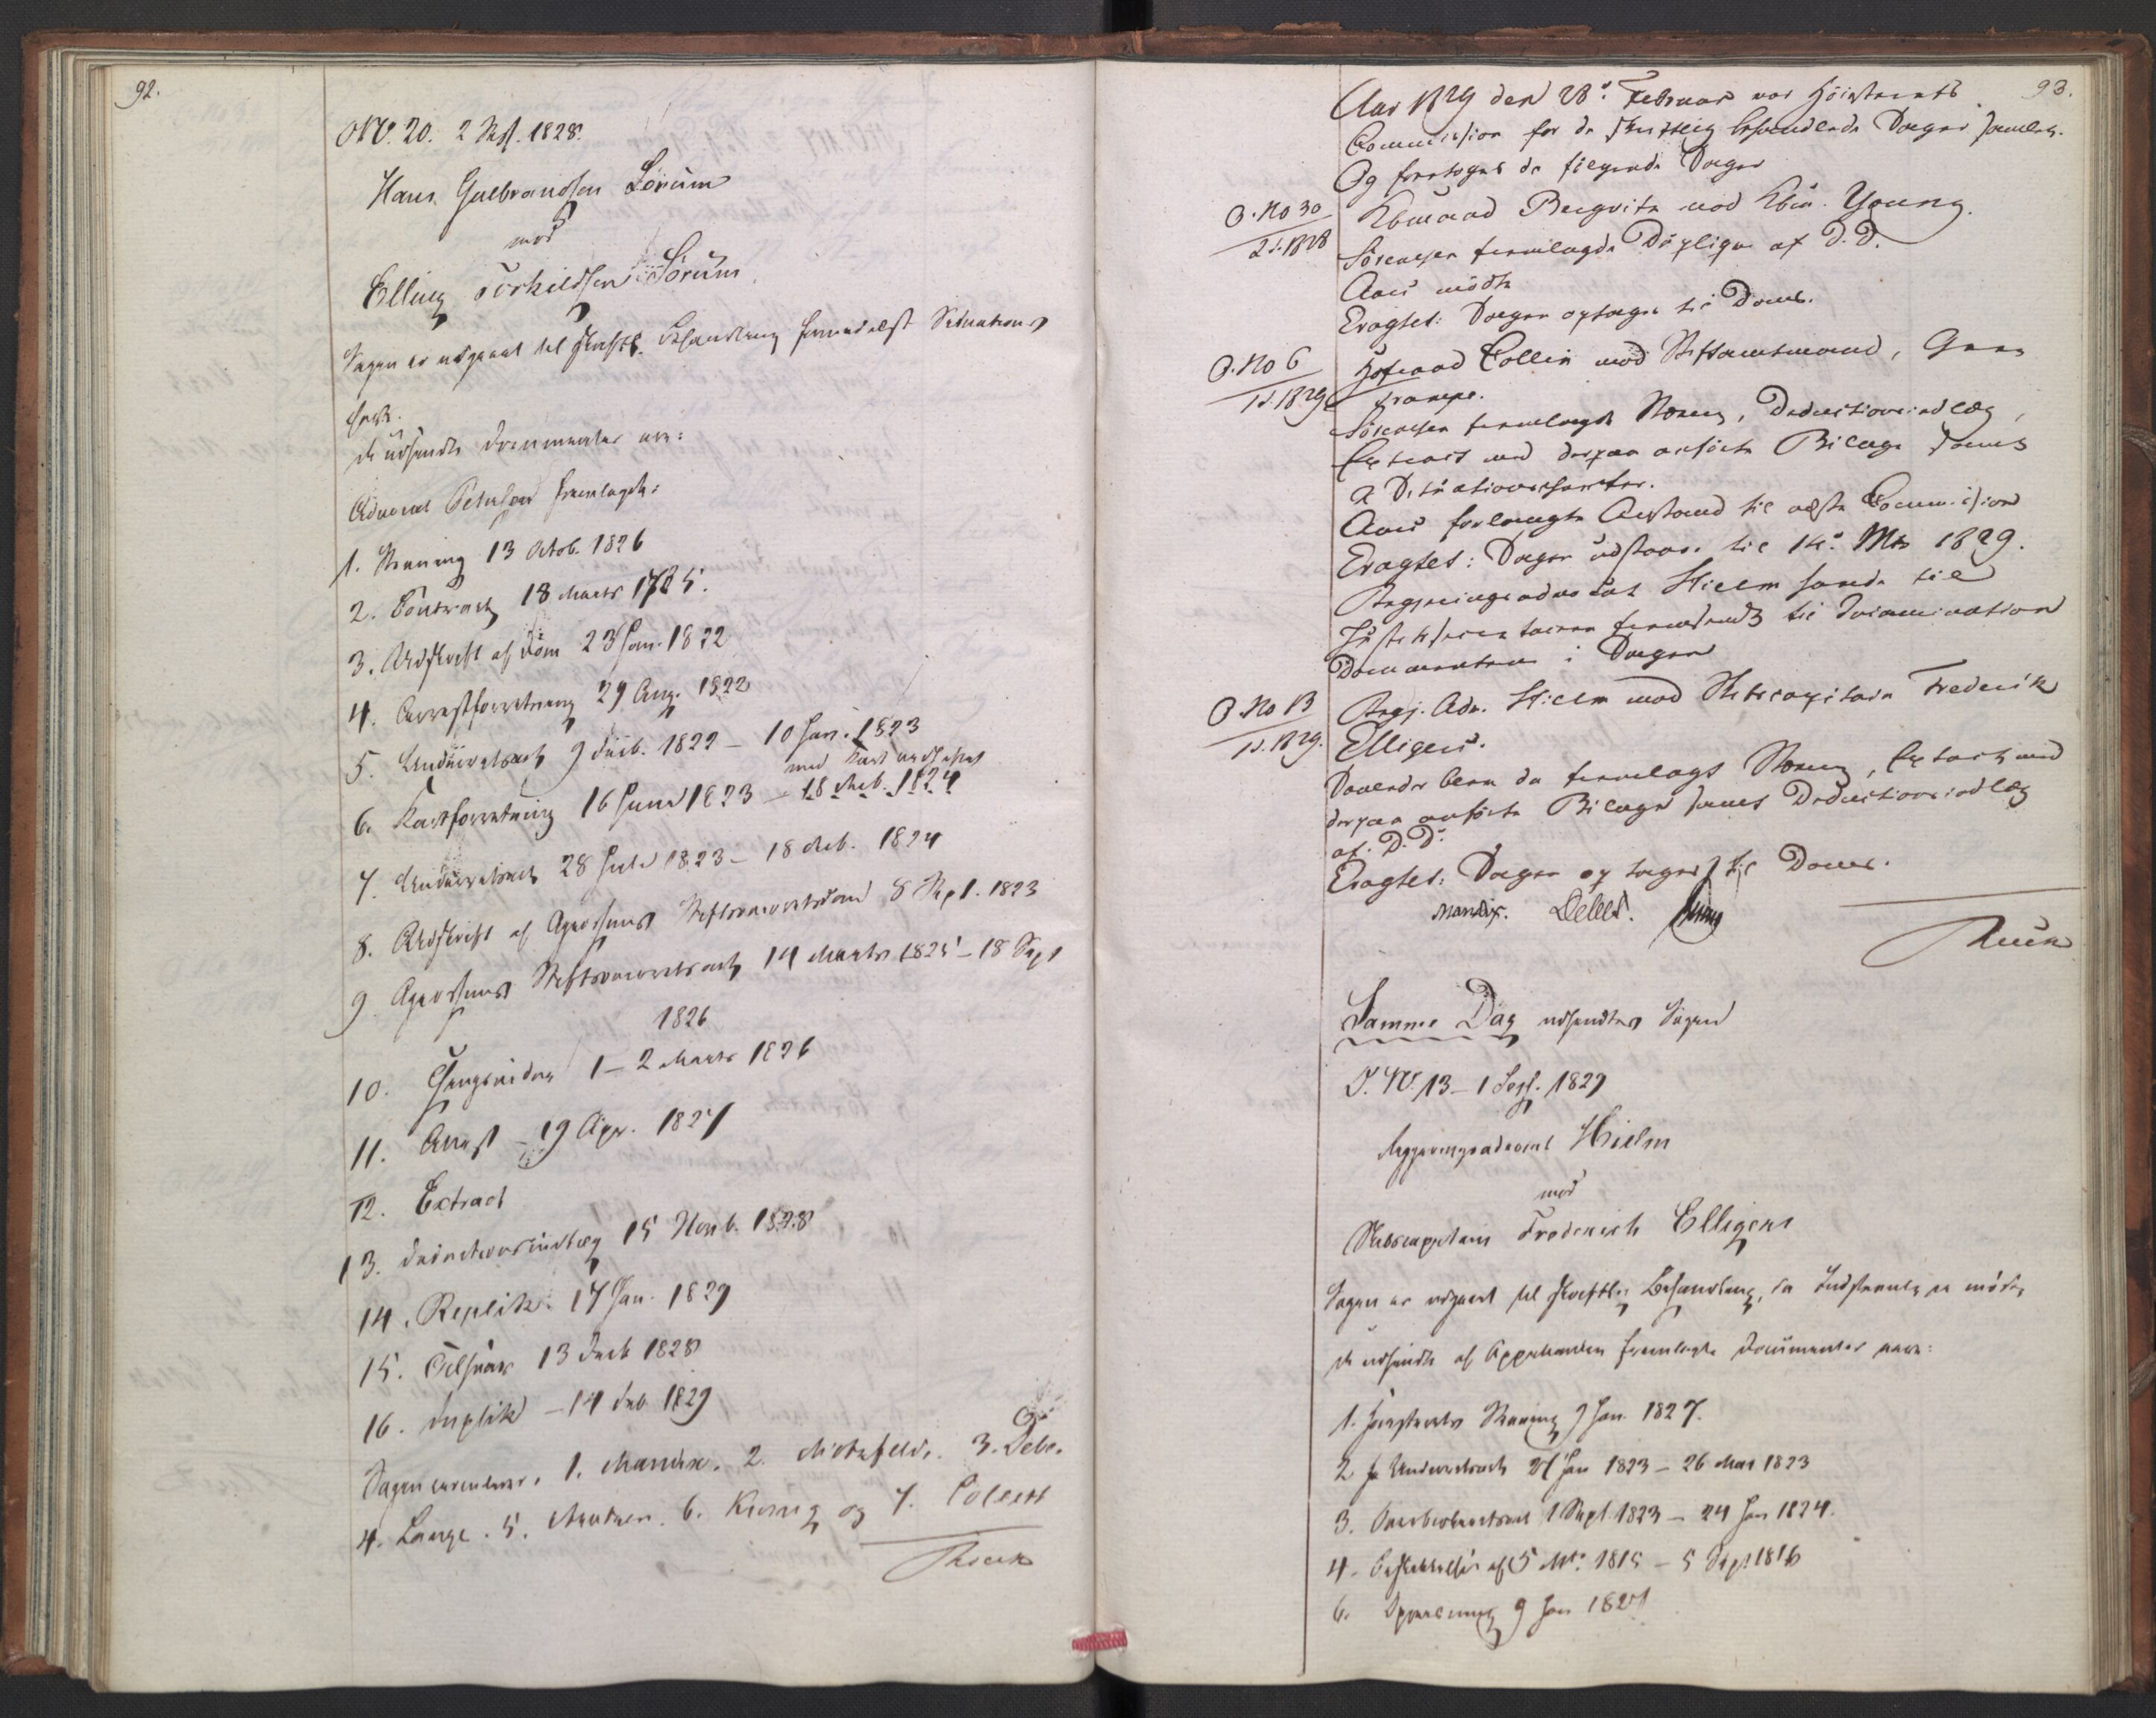 92.
No. 20. 2 Sess. 1828.
Hans Gulbrandsen Sörum
mod
Elling Torkildsen Sörum
Sagen er udgaaet til skriftl. Behandling formedelst Situations
Carte.
De udsendte Documenter ere:
Advocat Petersen fremlagde:
1. Stevning 13 Octob. 1826
2. Contract 18 Marts 1785.
3. Udskrift af Dom 23 Jan. 1822
4. Arrestforretning 29 Aug. 1822
5. Underretsact 9 Decb. 1822 – 10 Jan. 1823
med Kart vedhæftet
6. Kartforretning 16 Juni 1823 – 18 Feb. 1824
7. Underretsact 28 Juli 1823 – 18 Feb. 1824
8. Udskrift af Agershuus Stiftsoverretsdom 8 Sept. 1823
9 Agershuus Stiftsoverretsact 14 Marts 1825 – 18 Sept
1826
10. 1 – 2 Marts 1826
11. – 19 Apr. 1827
12. Extract
13. Deductionsindlæg 15 Novb. 1828
14. Replik 17 Jan. 1829
15. Tilsvar 13 Decb 1828
16. Duplik – 14 Feb 1829
Sagen circulerer. 1. Mandix. 2. Motzfeldt. 3. Debes
4. Lange. 5. 6. og 7. Collett
93.
Aar 1829 den 28d. Februar var Höiesterets
Commission for de skriftlig behandlede Sager samlet.
Og foretoges da fölgende Sager
O. No 30
2 S. 1828
mod Kbm. Young.
Sörensen fremlagde Duplique af D. D.
Aars mödte
Eragtet: Sagen optages til Doms.
O. No 6
1 S. 1829
Hofraad Collin mod Stiftamtmand, Grev
Trampe.
Sörensen fremlagde Stevning, Deductionsindlæg,
Extract med derpaa anförte Bilage samt
2 Situationscharter.
Aars forlangte Anstand til næste Commission
Eragtet: Sagen udstaaer til 14d. Mts 1829.
Regjeringsadvocat Hielm havde til
Justitssecretairen fremsendt til Circulation
Documenterne i Sagen
O. No 13
1 S. 1829.
Regj. Adv. Hielm mod Stabscapitain Frederik
Elligers.
Saaledes blev da fremlagt Stevning, Extract med
derpaa anförte Bilager samt Deductionsindlæg
af D. D.
Eragtet: Sagen optages til Doms.
Mandix. Debes.
Samme Dag udsendtes Sagen
O. No. 13 – 1 Sess. 1829
Regjeringsadvocat Hielm
mod
Stabscapitain Frederich Elligers
Sagen er udgaaet til skriftlig Behandling, da Indstevnte ei mödte,
De udsendte af Appellanten fremlagte Documenter vare:
1. Höiesterets Stevning 9 Jan. 1827.
2 Underretsact 27 Jan 1823 – 26 Mai 1823
3. 1 Sept. 1823 – 24 Jan 1824.
4. af 5 Mts. 1815 – 5 Sept 1816
6. 9 Jan 1827